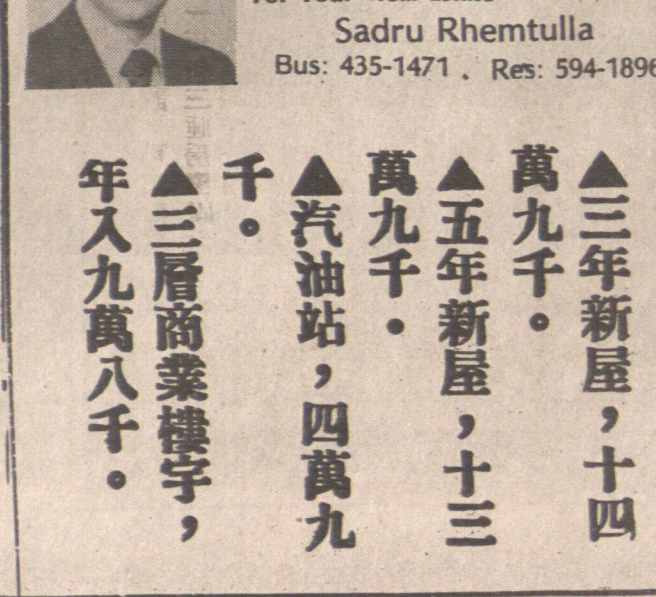 Sadru Rhemtulla
Bus: 435-1471 . Res: 594-1896
▲三年新屋，十四
萬九千。
▲五年新屋，十三
萬九千。
▲汽油站，四萬九
千。
▲三層商業樓宇，
年入九萬八千。